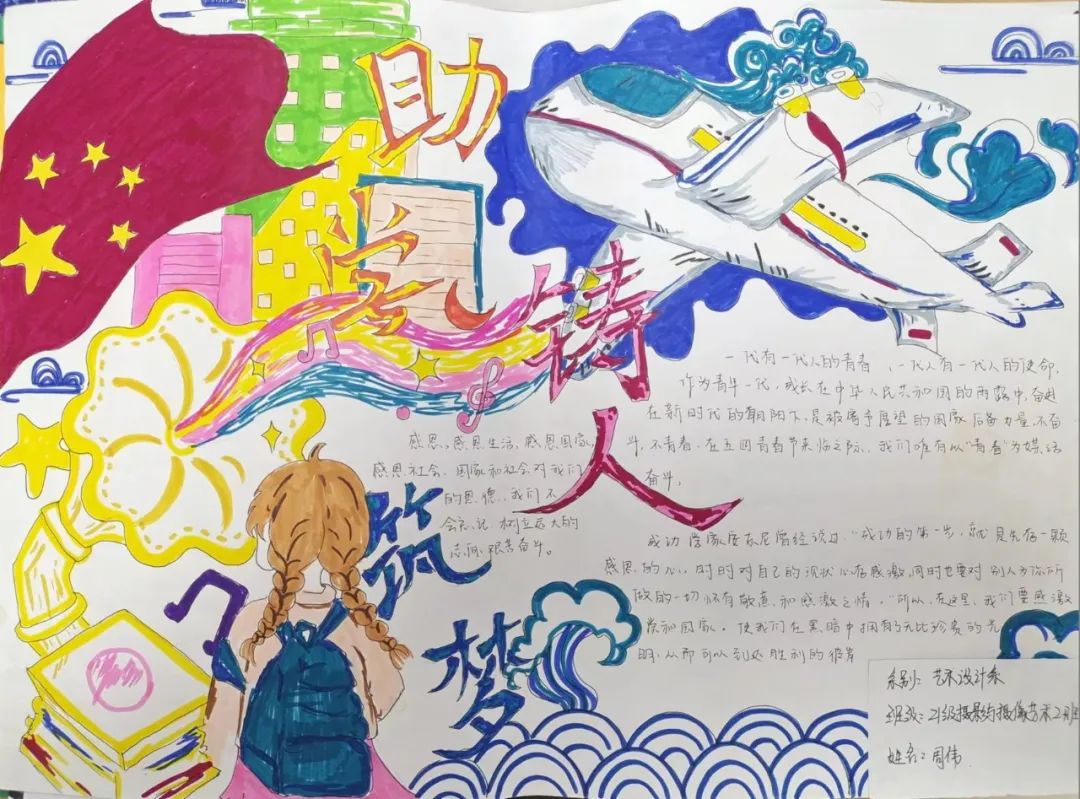 助学
铸人
筑梦
一代有一代人的青春，一代人有一代人的使命，
作为青年一代，成长在中华人民共和国的雨露中，奋进
在新时代的朝阳下，是被寄予厚望的国家后备力量，不奋
斗，不青春，在五四青春节来临之际，我们唯有以“青春”为媒，话
奋斗，
感恩，感恩生活，感恩国家，
感恩社会，国家和社会对我们
的恩德，我们不
会忘记，树立远大的
志向，艰苦奋斗。
成功学家安东尼曾经说过：“成功的第一步，就是先存一颗
感恩的心，时时对自己的现状心存感激，同时也要对别人为你所
做的一切怀有敬意和感激之情。”所以，在这里，我们要感激
党和国家，使我们在黑暗中拥有了无比珍贵的光
明，从而可以到达胜利的彼岸
系别：艺术设计系
班级：21级摄影与摄像艺术2班
姓名：周伟